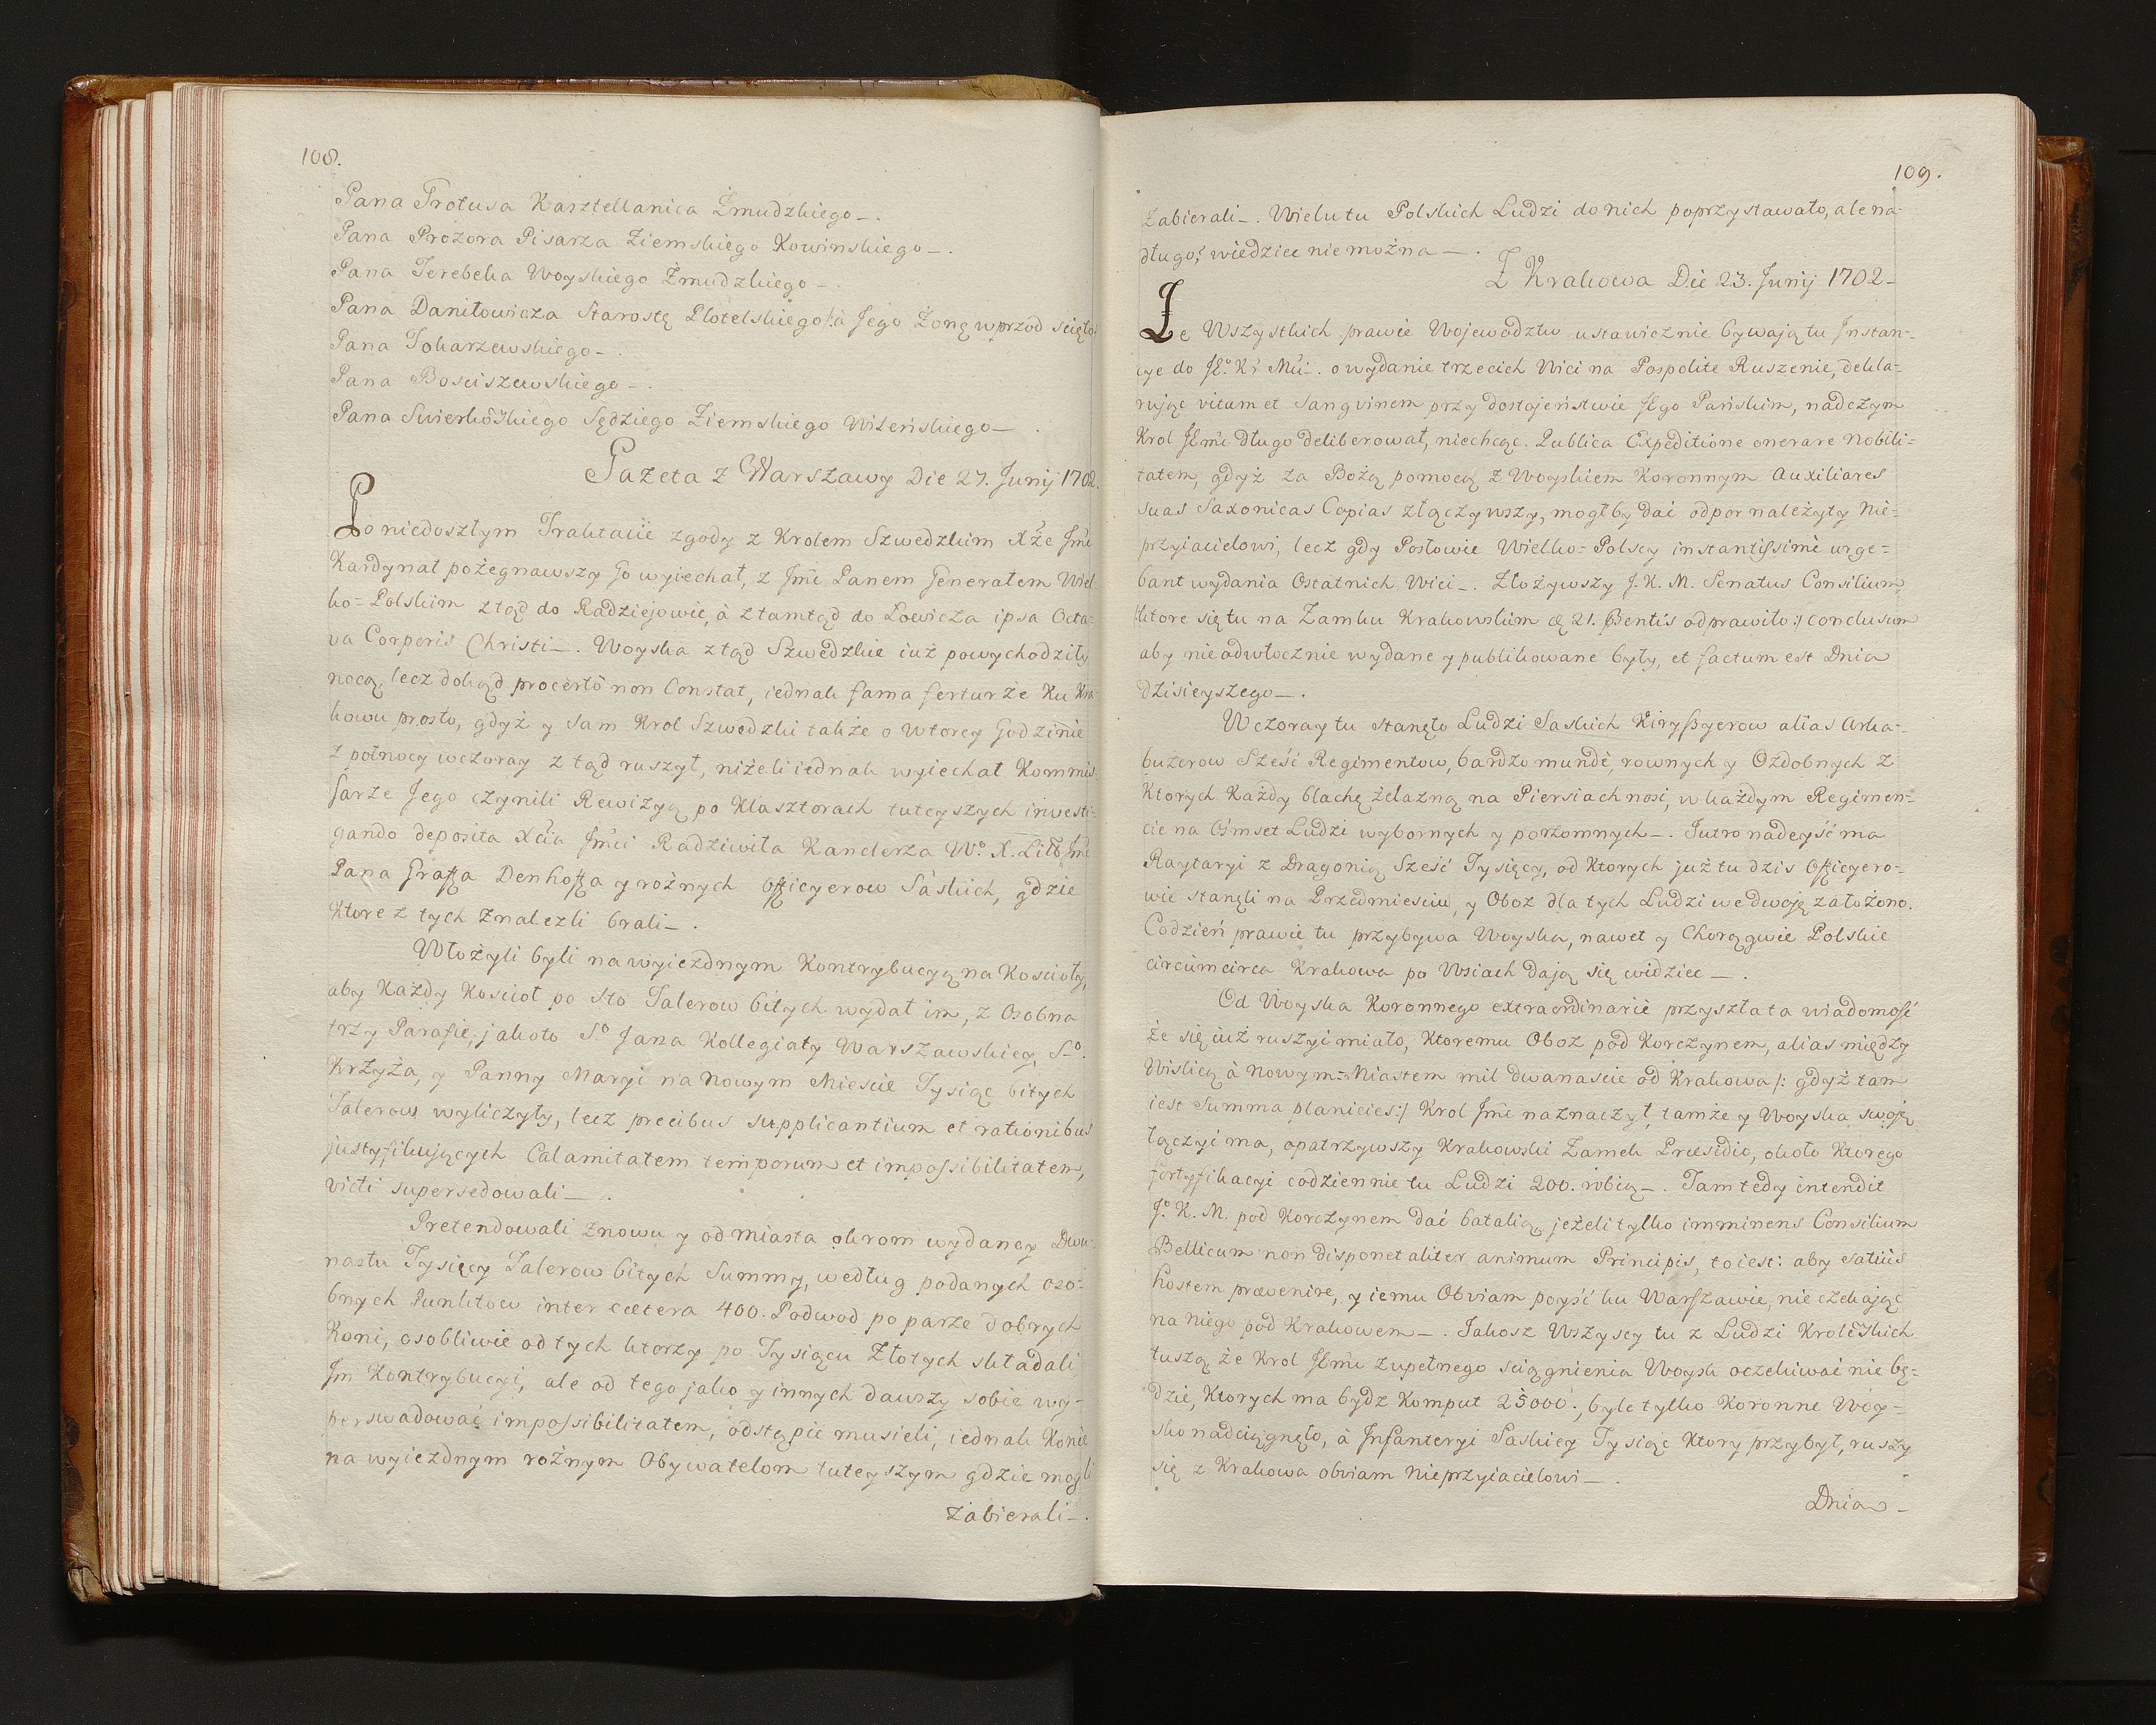 108.
Pana Protusa Kasztellanica Żmudzkiego_.
Pana Prozora Pisarza Ziemskiego Kowinskiego_.
Pana Jerebeka Woyskiego Żmudzkiego_.
Pana Daniłowicza Starostę Plotelskiego /: à Jego Żonę wprzod scięto
Pana Tokarzewskiego_.
Pana Bosciszewskiego_.
Pana Sędziego Ziemskiego Wileńskiego_.
Gazeta z Warszawy Die 27. Junij 1702.
Po niedoszłym Traktacie zgody z Krolem Szwedzkim Xże Jmć
Kardynał pożegnawszy Go wyiechał, z Jmć Panem Generałem Wiel-
ko=Polskim ztąd do Radziejowic, à ztamtąd do Łowicza ipsa Octa-
va Corporis Christi_. Woyska ztąd Szwedzkie iuż powychodziły
nocą, lecz dokąd procertò non Constat, iednak fama fertur że Ku Kra-
kowu prosto, gdyż y sam Krol Szwedzki także o wtorey Godzinie
z połnocy wczoray ztąd ruszył, niżeli iednak wyiechał Kommis-
sarze Jego czynili Rewizyą po Klasztorach tuteyszych investi-
gando deposita Xcia Jmci Radziwiła Kanclerza Wo. X. Litt. Jmć
Pana Graffa Denhoffa y rożnych Officyerow Sàskich, gdzie
Ktore z tych Znalezli brali_.
Włożyli byli na wyiezdnym Kontrybucyą na Koscioły,
aby Każdy Kosciół po Sto Talerow bitych wydał im, z Osobna
trzy Parafie, jakoto So. Jana Kollegiaty Warszawskiey, S-o.
Krzyża, y Panny Maryi na Nowym Miescie Tysiąc bitych
Talerow wyliczyły, lecz precibus supplicantium et rationibus
justyfikujących Calamitatem temporum et impossibilitatem,
victi supersedowali_.
Pretendowali znowu y od miasta okrom wydaney Dwu-
nastu Tysięcy Talerow bitych Summy, według podanych oso-
bnych Punktow inter cætera 400. Podwod po parze dobrych
Koni, osobliwie od tych ktorzy po Tysiącu Złotych składali
Im Kontrybucyi, ale od tego jako y innych dawszy sobie wy-
perswadować impossibilitatem, odstąpic musieli, iednak Konie
na wyiezdnym rożnym Obywatelom tuteyszym gdzie mogli
zabierali_.
109.
Zabierali_. Wielu tu Polskich Ludzi do nich poprzystawało, ale na-
długo? wiedziec nie można_.
Z Krakowa Die 23. Junij 1702_
Ze Wszystkich prawie Wojewodztw ustawicznie bywają tu Instan-
cye do Jo. Kr. Mci. o wydanie trzecich Wici na Pospolite Ruszenie, dekla-
rując vitam et sangvinem przy dostojeństwie Jego Pańskim, nad czym
Krol Jmć długo deliberował, niechcąc Publica Expeditione onerare Nobili=
tatem, gdyż za Bożą pomocą z Woyskiem Koronnym Auxiliares
suas Saxonicas Copias złączywszy, mogłby dać odpor należyty Nie=
przyiacielowi, lecz gdy Posłowie Wielko=Polscy instantissimè urge=
bant wydania Ostatnich Wici_. Złożywszy J. K. M. Senatus Consilium,
/:ktore się tu na Zamku Krakowskim æ 21. præsentis odprawiło:/ conclusum
aby nieodwłocznie wydane y publikowane były, et factum est Dnia
dzisieyszego_.
Wczoray tu stanęło Ludzi Saskich Kiryssyerow alias Arka-
buzerow Sześć Regimentow, bardzo mundè, rownych y Ozdobnych z
Ktorych Każdy blachę żelazną na Piersiach nosi, w każdym Regimen=
cie na Ośmset Ludzi wybornych y porzomnych_. Jutro nadeyść ma
Raytaryi z Dragonią Sześć Tysięcy, od Ktorych już tu dzis Officyero-
wie stanęli na Przedmiesciu, y Oboz dla tych Ludzi we dwoję założono.
Codzień prawie tu przybywa Woyska, nawet y Chorągwie Polskie
circùmcirca Krakowa po Wsiach dają się widziec_.
Od Woyska Koronnego extraordinariè przyszła ta wiadomość
że się iuż ruszyć miało, Ktoremu Oboz pod Korczynem, alias między
Wislicą à Nowym=Miastem mil dwanascie od Krakowa /: gdyż tam
iest Summa planicies:/ Krol Jmć naznaczył, tamże y Woyska swoję
łączyć ma, opatrzywszy Krakowski Zamek Præsidio, około Ktorego
fortyfikacyi codziennie tu Ludzi 200. robią_. Tam tedy intendit
Jo. K. M. pod Korczynem dać batalią, jeżeli tylko imminens Consilium
Bellicum non disponet aliter animum Principis, to iest: aby satius
hostem prævenire, y iemu Obviam poyść ku Warszawie, nie czekając
na niego pod Krakowem_. Jakosz Wszyscy tu z Ludzi Krolewskich
tuszą że Krol Jmć zupełnego sciągnienia Woysk oczekiwać nie bę-
dzie, Ktorych ma bydz Komput 25000., byle tylko Koronne Woy=
sko nadciągnęło, à Infanteryi Saskiey Tysiąc Ktory przybył, ruszy
się z Krakowa obviam Nieprzyiacielowi_.
Dnia_